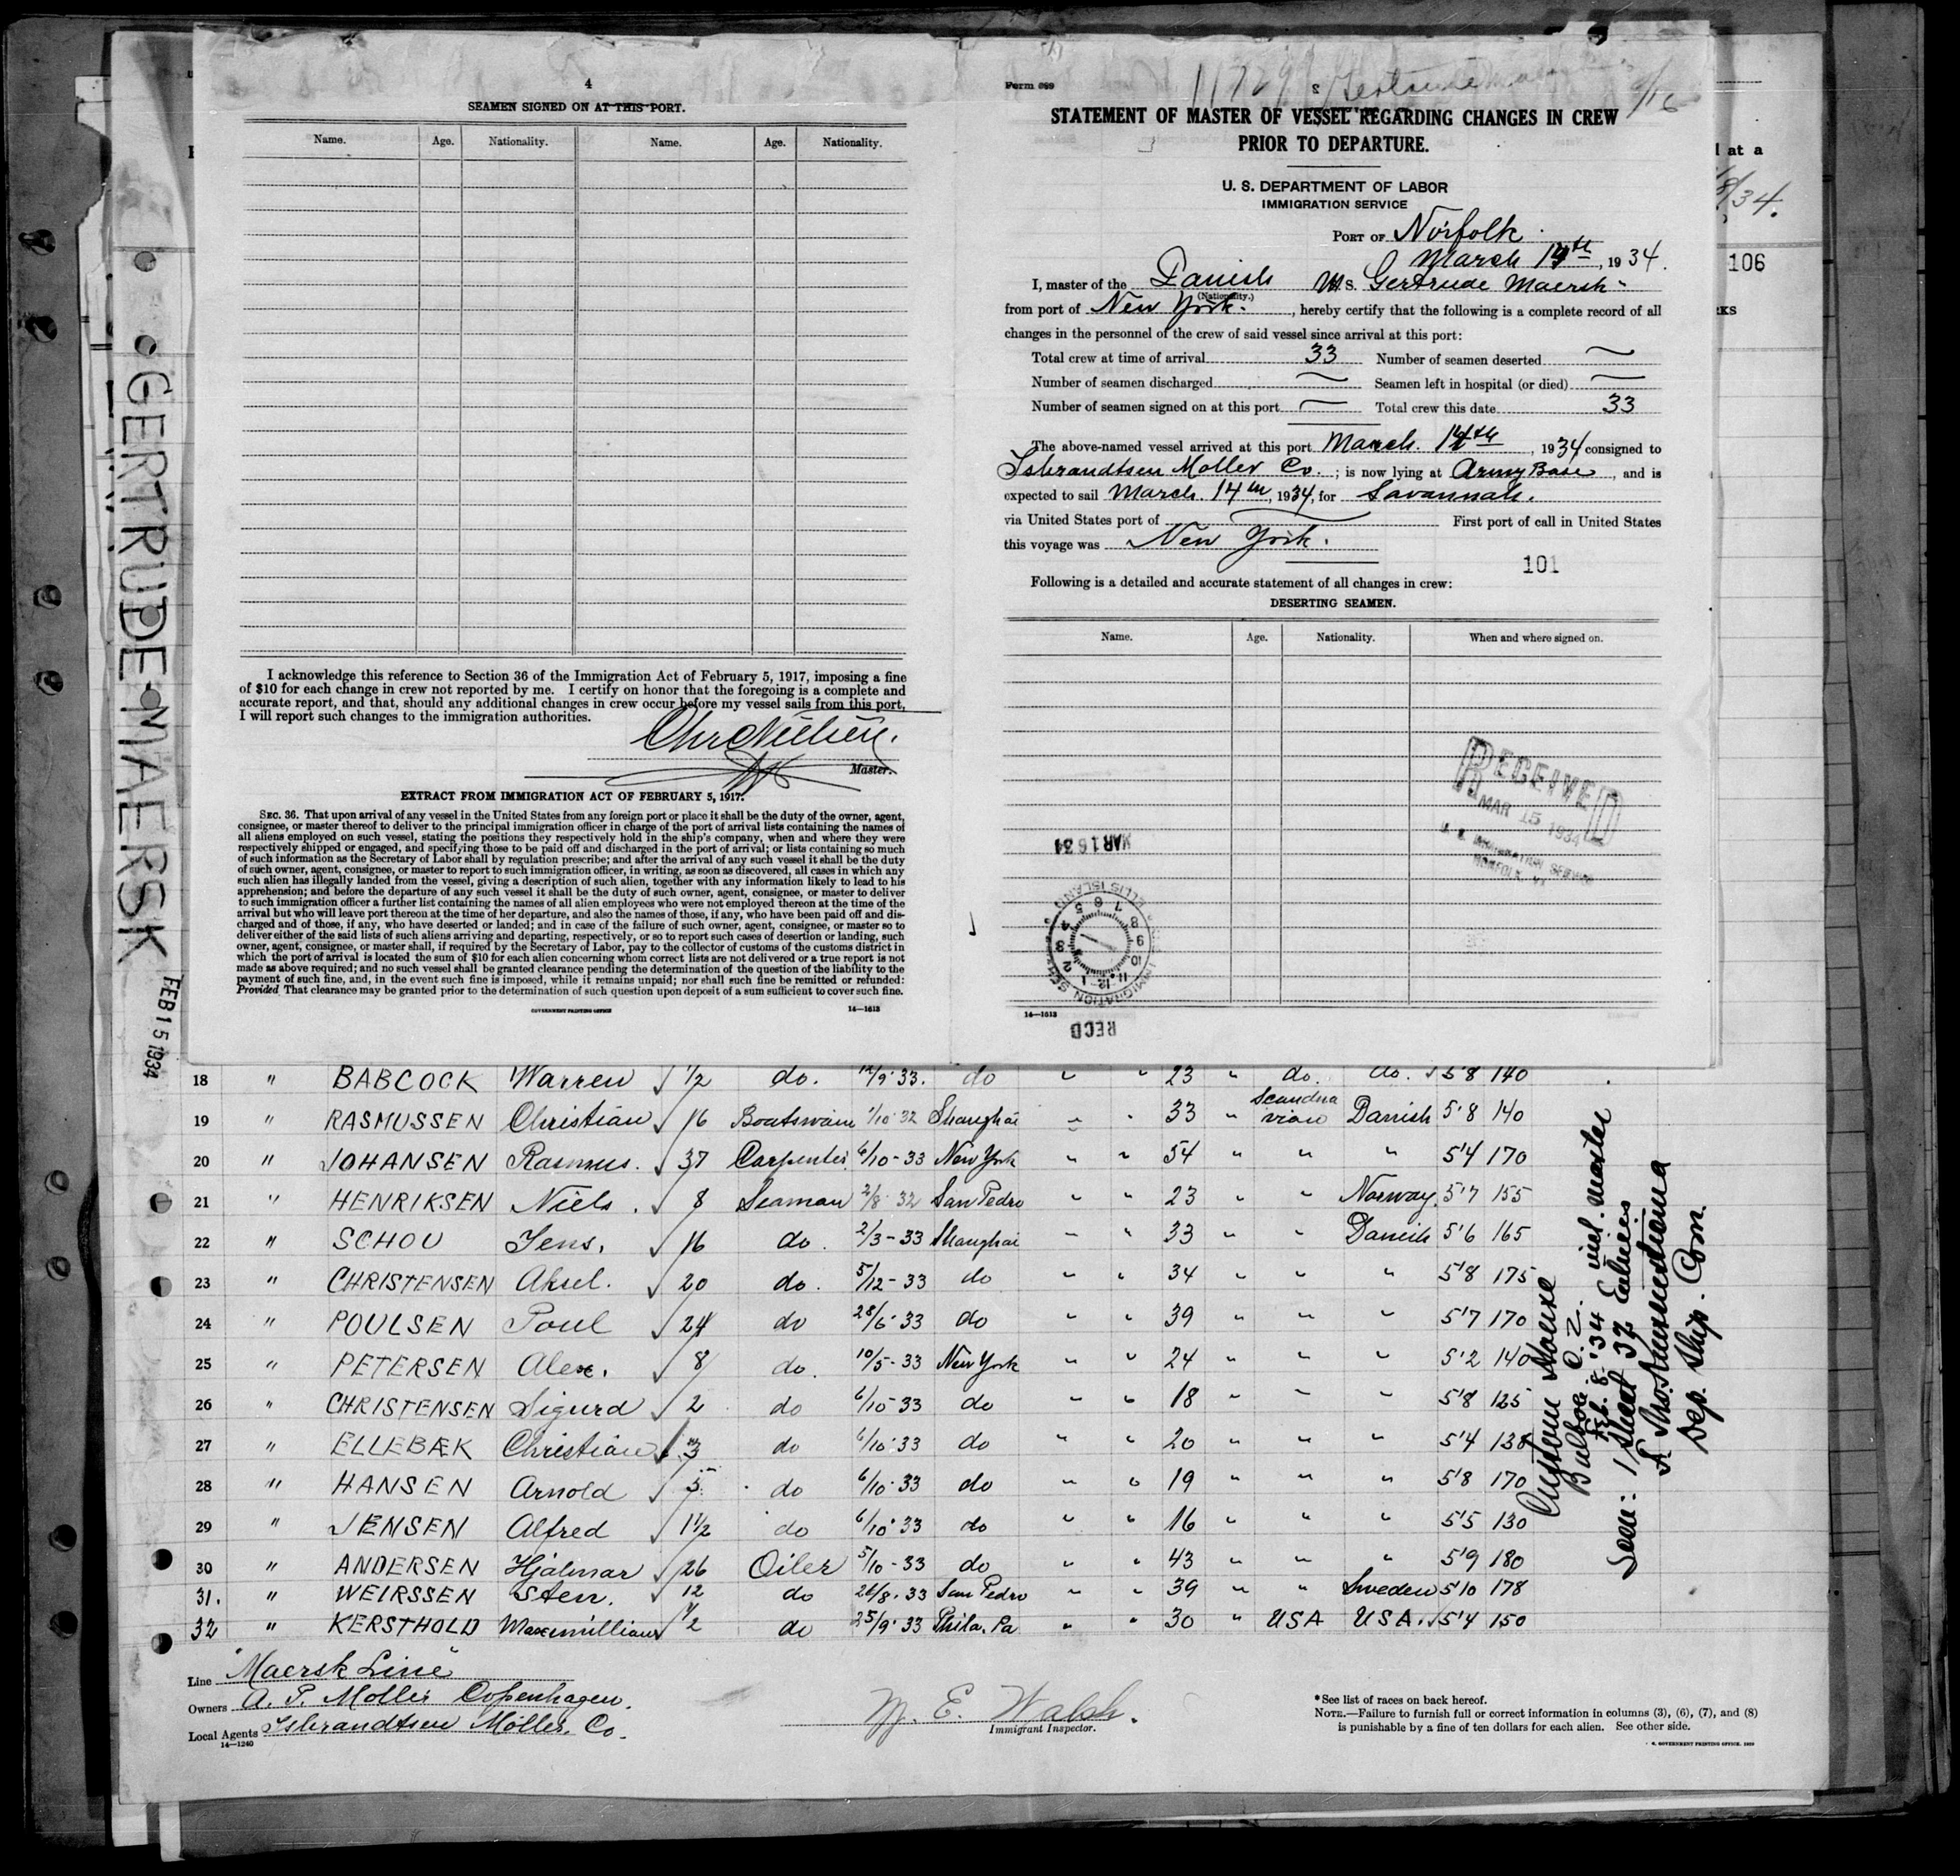 4
SEAMEN SIGNED ON AT THIS PORT.
Name. Age. Nationality. Name. Age. Nationality.
I acknowledge this reference to Section 36 of the Immigration Act of February 5, 1917, imposing a fine
of $10 for each change in crew not reported by me. I certify on honor that the foregoing is a complete and
accurate report, and that, should any additional changes in crew occur before my vessel sails from this port,
I will report such changes to the immigration authorities.
Chr Nielsen.
Master.
EXTRACT FROM IMMIGRATION ACT OF FEBRUARY 5, 1917.
SEC. 36. That upon arrival of any vessel in the United States from any foreign port or place it shall be the duty of the owner, agent,
consignee, or master thereof to deliver to the principal immigration officer in charge of the port of arrival lists containing the names of
all aliens employed on such vessel, stating the positions they respectively hold in the ship's company, when and where they were
respectively shipped or engaged, and specifying those to be paid off and discharged in the port of arrival; or lists containing so much
of such information as the Secretary of Labor shall by regulation prescribe; and after the arrival of any such vessel it shall be the duty
of such owner, agent, consignee, or master to report to such immigration officer, in writing, as soon as discovered, all cases in which any
such alien has illegally landed from the vessel, giving a description of such alien, together with any information likely to lead to his
apprehension; and before the departure of any such vessel it shall be the duty of such owner, agent, consignee, or master to deliver
to such immigration officer a further list containing the names of all alien employees who were not employed thereon at the time of the
arrival but who will leave port thereon at the time of her departure, and also the names of those, if any, who have been paid off and dis-
charged and of those, if any, who have deserted or landed; and in case of the failure of such owner, agent, consignee, or master so to
deliver either of the said lists of such aliens arriving and departing, respectively, or so to report such cases of desertion or landing, such
owner, agent, consignee, or master shall, if required by the Secretary of Labor, pay to the collector of customs of the customs district in
which the port of arrival is located the sum of $10 for each alien concerning whom correct lists are not delivered or a true report is not
made as above required; and no such vessel shall be granted clearance pending the determination of the question of the liability to the
payment of such fine, and, in the event such fine is imposed, while it remains unpaid; nor shall such fine be remitted or refunded:
Provided, That clearance may be granted prior to the determination of such question upon deposit of a sum sufficient to cover such fine.
GOVERNMENT PRINTING OFFICE 14—1613
Form 689
STATEMENT OF MASTER OF VESSEL REGARDING CHANGES IN CREW
PRIOR TO DEPARTURE.
U. S. DEPARTMENT OF LABOR
IMMIGRATION SERVICE
PORT OF Norfolk.
March 14th, 1934.
I, master of the Danish M.S. Gertrude Maersk
(Nationality.)
from port of New York., hereby certify that the following is a complete record of all
changes in the personnel of the crew of said vessel since arrival at this port:
Total crew at time of arrival 33 Number of seamen deserted —
Number of seamen discharged — Seamen left in hospital (or died) —
Number of seamen signed on at this port — Total crew this date 33
The above-named vessel arrived at this port March. 14th, 1934 consigned to
Isbrandtsen Moller Co.; is now lying at Army Base, and is
expected to sail March. 14th, 1934, for Savannah.
via United States port of — First port of call in United States
this voyage was New York.
101
Following is a detailed and accurate statement of all changes in crew:
DESERTING SEAMEN.
Name. Age. Nationality. When and where signed on.
RECEIVED
MAR 15 1934
U. S. IMMIGRATION SERVICE
NORFOLK, VA
MAR 16 34
ELLIS ISLAND
IMMIGRATION
RECD
14—1613
at a
/34.
106
GERTRUDE MAERSK
FEB 15 1934
18 " BABCOCK Warren ✓ 1/2 do. 12/9·33. do " " 23 " do. do. ✓ 5'8 140
19 " RASMUSSEN Christian ✓ 16 Boatswain 1/10·32 Shanghai " " 33 " Scandinavian Danish 5'8 140
20 " JOHANSEN Rasmus. ✓ 37 Carpenter 6/10-33 New York " " 54 " " " 5'4 170
21 " HENRIKSEN Niels. ✓ 8 Seaman 2/8 32 San Pedro " " 23 " " Norway. 5'7 155
22 " SCHOU Jens. ✓ 16 do. 2/3-33 Shanghai " " 33 " " Danish 5'6 165
23 " CHRISTENSEN Aksel. ✓ 20 do. 5/12-33 do " " 34 " " " 5'8 175
24 " POULSEN Poul ✓ 24 do 28/6·33 do " " 39 " " " 5'7 170
25 " PETERSEN Alex. ✓ 8 do. 10/5-33 New York " " 24 " " " 5'2 140
26 " CHRISTENSEN Sigurd ✓ 2 do 6/10-33 do " " 18 " " " 5'8 125
27 " ELLEBÆK Christian ✓ 3 do 6/10·33 do " " 20 " " " 5'4 138
28 " HANSEN Arnold ✓ 5 do 6/10·33 do " " 19 " " " 5'8 170
29 " JENSEN Alfred ✓ 1 1/2 do 6/10·33 do " " 16 " " " 5'5 130
30 " ANDERSEN Hjalmar ✓ 26 Oiler 5/10-33 do " " 43 " " " 5'9 180
31. " WEIRSSEN Sten. ✓ 12 do 26/8·33 San Pedro " " 39 " " Sweden 5'10 178
32 " KERSTHOLD Maxemillian ✓ 1/2 do 25/9·33 Phila. Pa " " 30 " USA USA. ✓ 5'4 150
Custom House
Balboa C. Z.
Feb. 8. '34 incl. master
Seen: 1 sheet 32 Entries
Dep. Ship. Com.
Line Maersk Line
Owners A. P. Moller Copenhagen.
Local Agents Isbrandtsen Moller. Co.
14—1240
M. E. Walsh.
Immigrant Inspector.
* See list of races on back hereof.
NOTE.—Failure to furnish full or correct information in columns (3), (6), (7), and (8)
is punishable by a fine of ten dollars for each alien. See other side.
U. S. GOVERNMENT PRINTING OFFICE